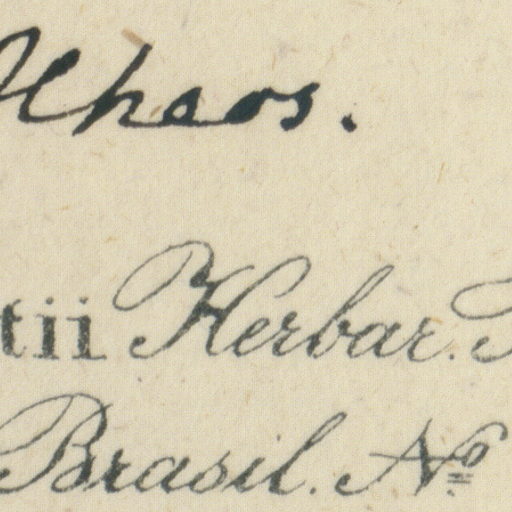 Ilheos.
tii Herbar.
Brasil. Nº